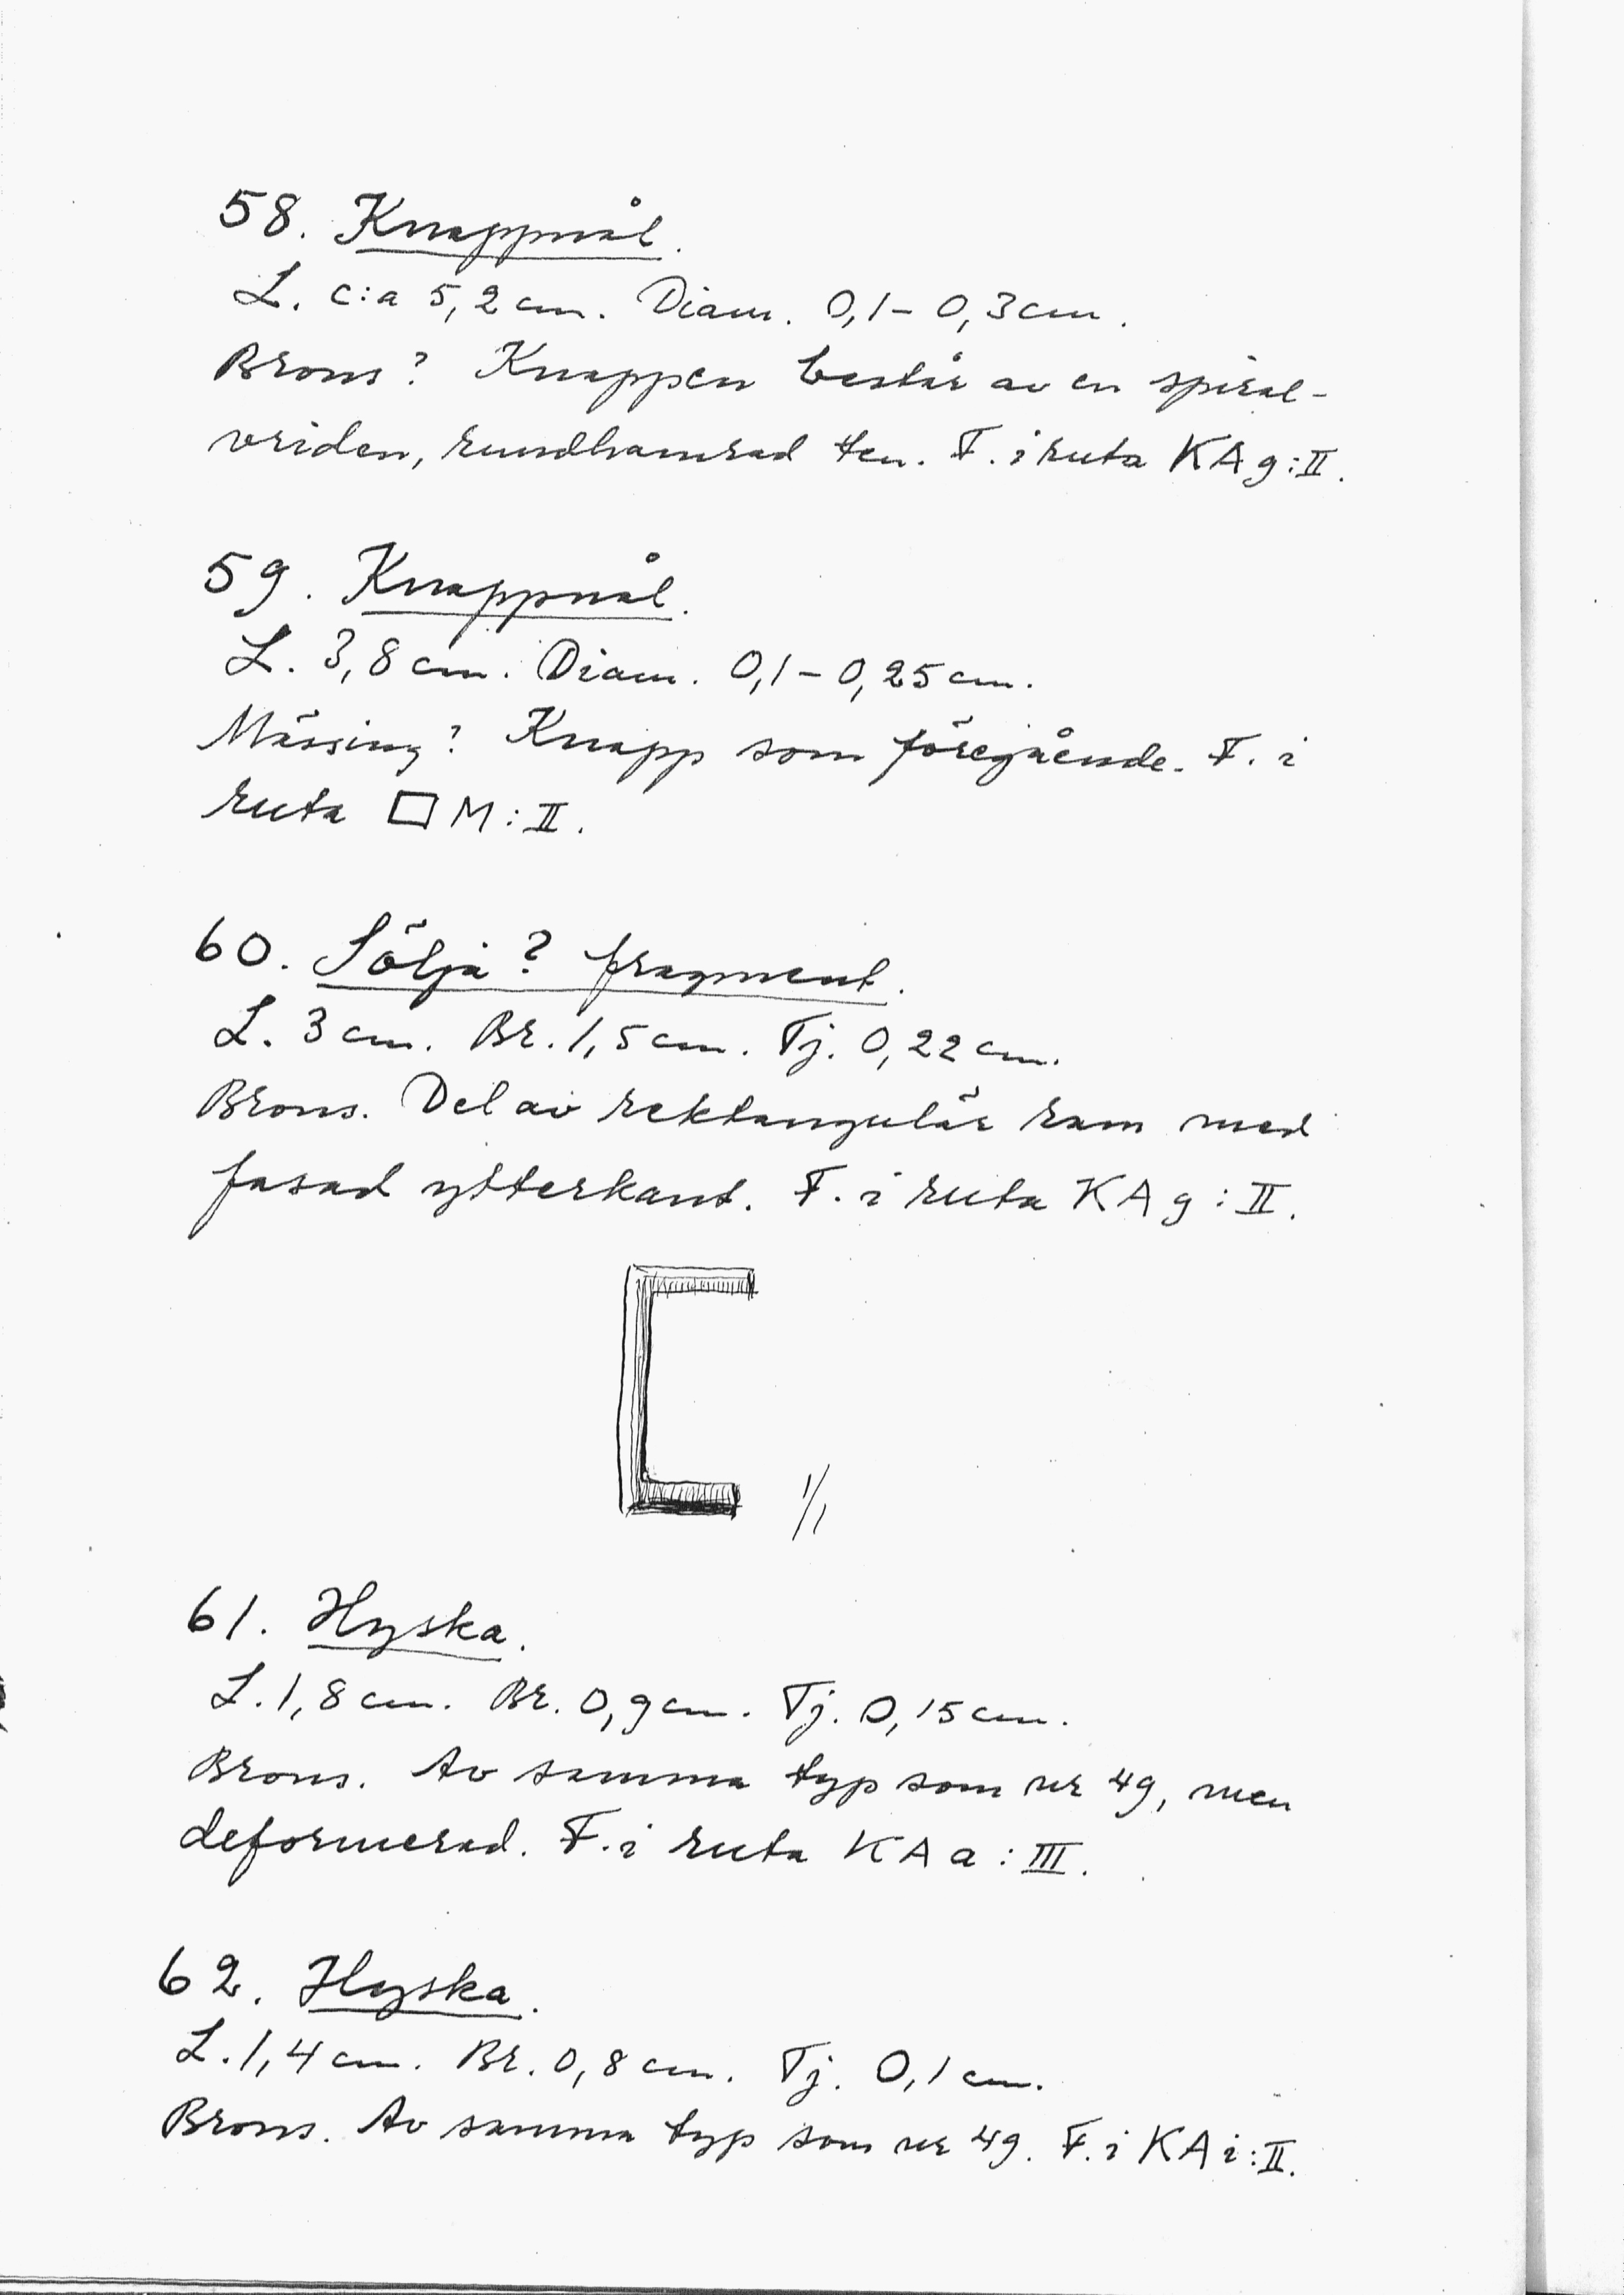 58. Knappnål.
L. c:a 5,2 cm. Diam. 0,1 – 0,3 cm.
Brons? Knappen består av en spiral-
vriden, rundhamrad ten. F. i ruta KA g:II.
59. Knappnål.
L. 3,8 cm. Diam. 0,1 – 0,25 cm.
Mässing? Knapp som föregående. F. i
ruta □ M:II.
60. Sölja? fragment.
L. 3 cm. Br. 1,5 cm. Tj. 0,22 cm.
Brons. Del av rektangulär ram med
fasad ytterkant. F. i ruta KA g:II.
1/1
61. Hyska.
L. 1,8 cm. Br. 0,9 cm. Tj. 0,15 cm.
Brons. Av samma typ som nr 49, men
deformerad. F. i ruta KA a:III.
62. Hyska.
L. 1,4 cm. Br. 0,8 cm. Tj. 0,1 cm.
Brons. Av samma typ som nr 49. F. i KA i:II.